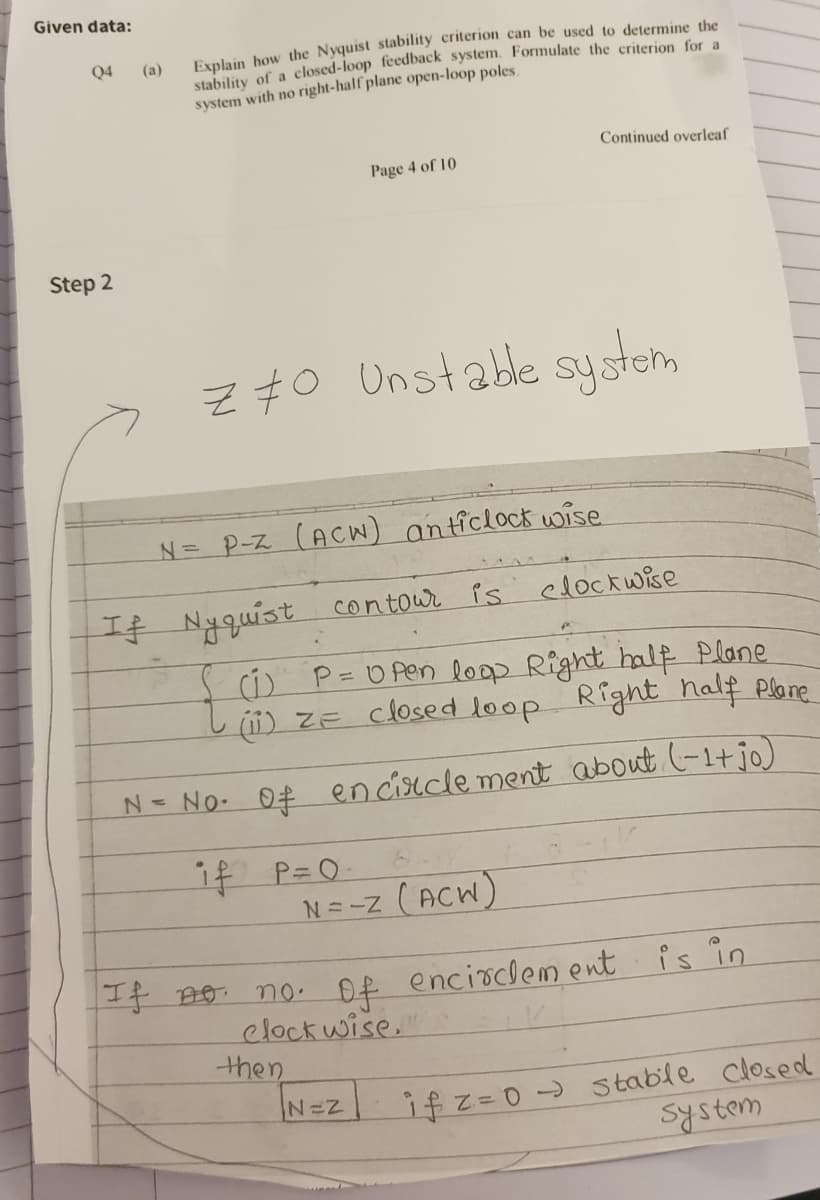 Given data:
Q4 (a) Explain how the Nyquist stability criterion can be used to determine the
stability of a closed-loop feedback system. Formulate the criterion for a
system with no right-half plane open-loop poles.
Continued overleaf
Page 4 of 10
Step 2
Z ≠ 0 Unstable system
N = P-Z (ACW) anticlock wise
If Nyquist contour is clockwise
(i) P = Open loop Right half Plane
(ii) Z = closed loop Right half Plane
N = No. Of encirclement about (-1+j0)
if P=0.
N = -Z (ACW)
If no. no. Of encirclement is in
clockwise.
then
N=Z if Z=0 → stable closed
system